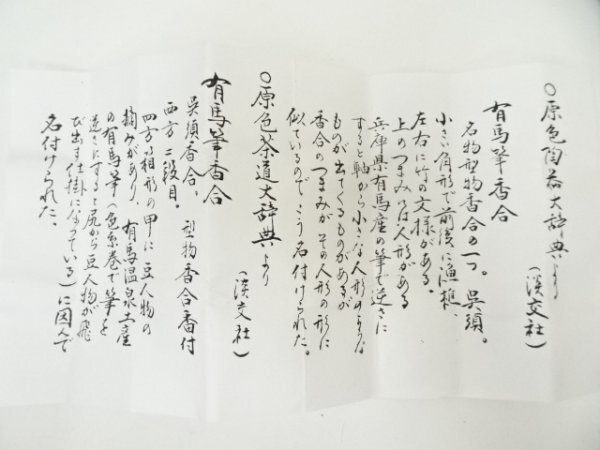 ○原色陶器大辞典より
(淡交社)
有馬筆香合
名物型物香合の一つ。呉須。
小さい角形で前後に漁樵、
左右に竹の文様がある。
上のつまみには人形がある
兵庫県有馬産の筆で逆さに
すると軸から小さな人形のような
ものが出てくるものがあるが
香合のつまみがその人形の形に
似ているので、こう名付けられた。
○原色茶道大辞典より
(淡交社)
有馬筆香合
呉須香合。型物香合番付
西方二段目。
四方の箱形の甲に豆人物の
摘みがあり、有馬温泉土産
の有馬筆(色糸巻で筆を
逆さにすると尻から豆人物が飛
び出す仕掛になっている)に因んで
名付けられた。